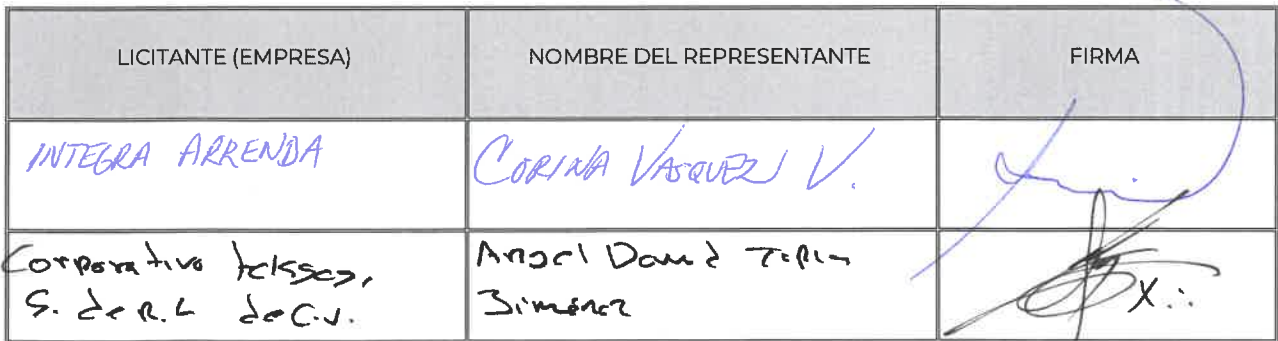 LICITANTE (EMPRESA) NOMBRE DEL REPRESENTANTE FIRMA
INTEGRA ARRENDA CORINA VASQUEZ V.
Corporativo Angel David
S. de R.L de C.V. Jiménez